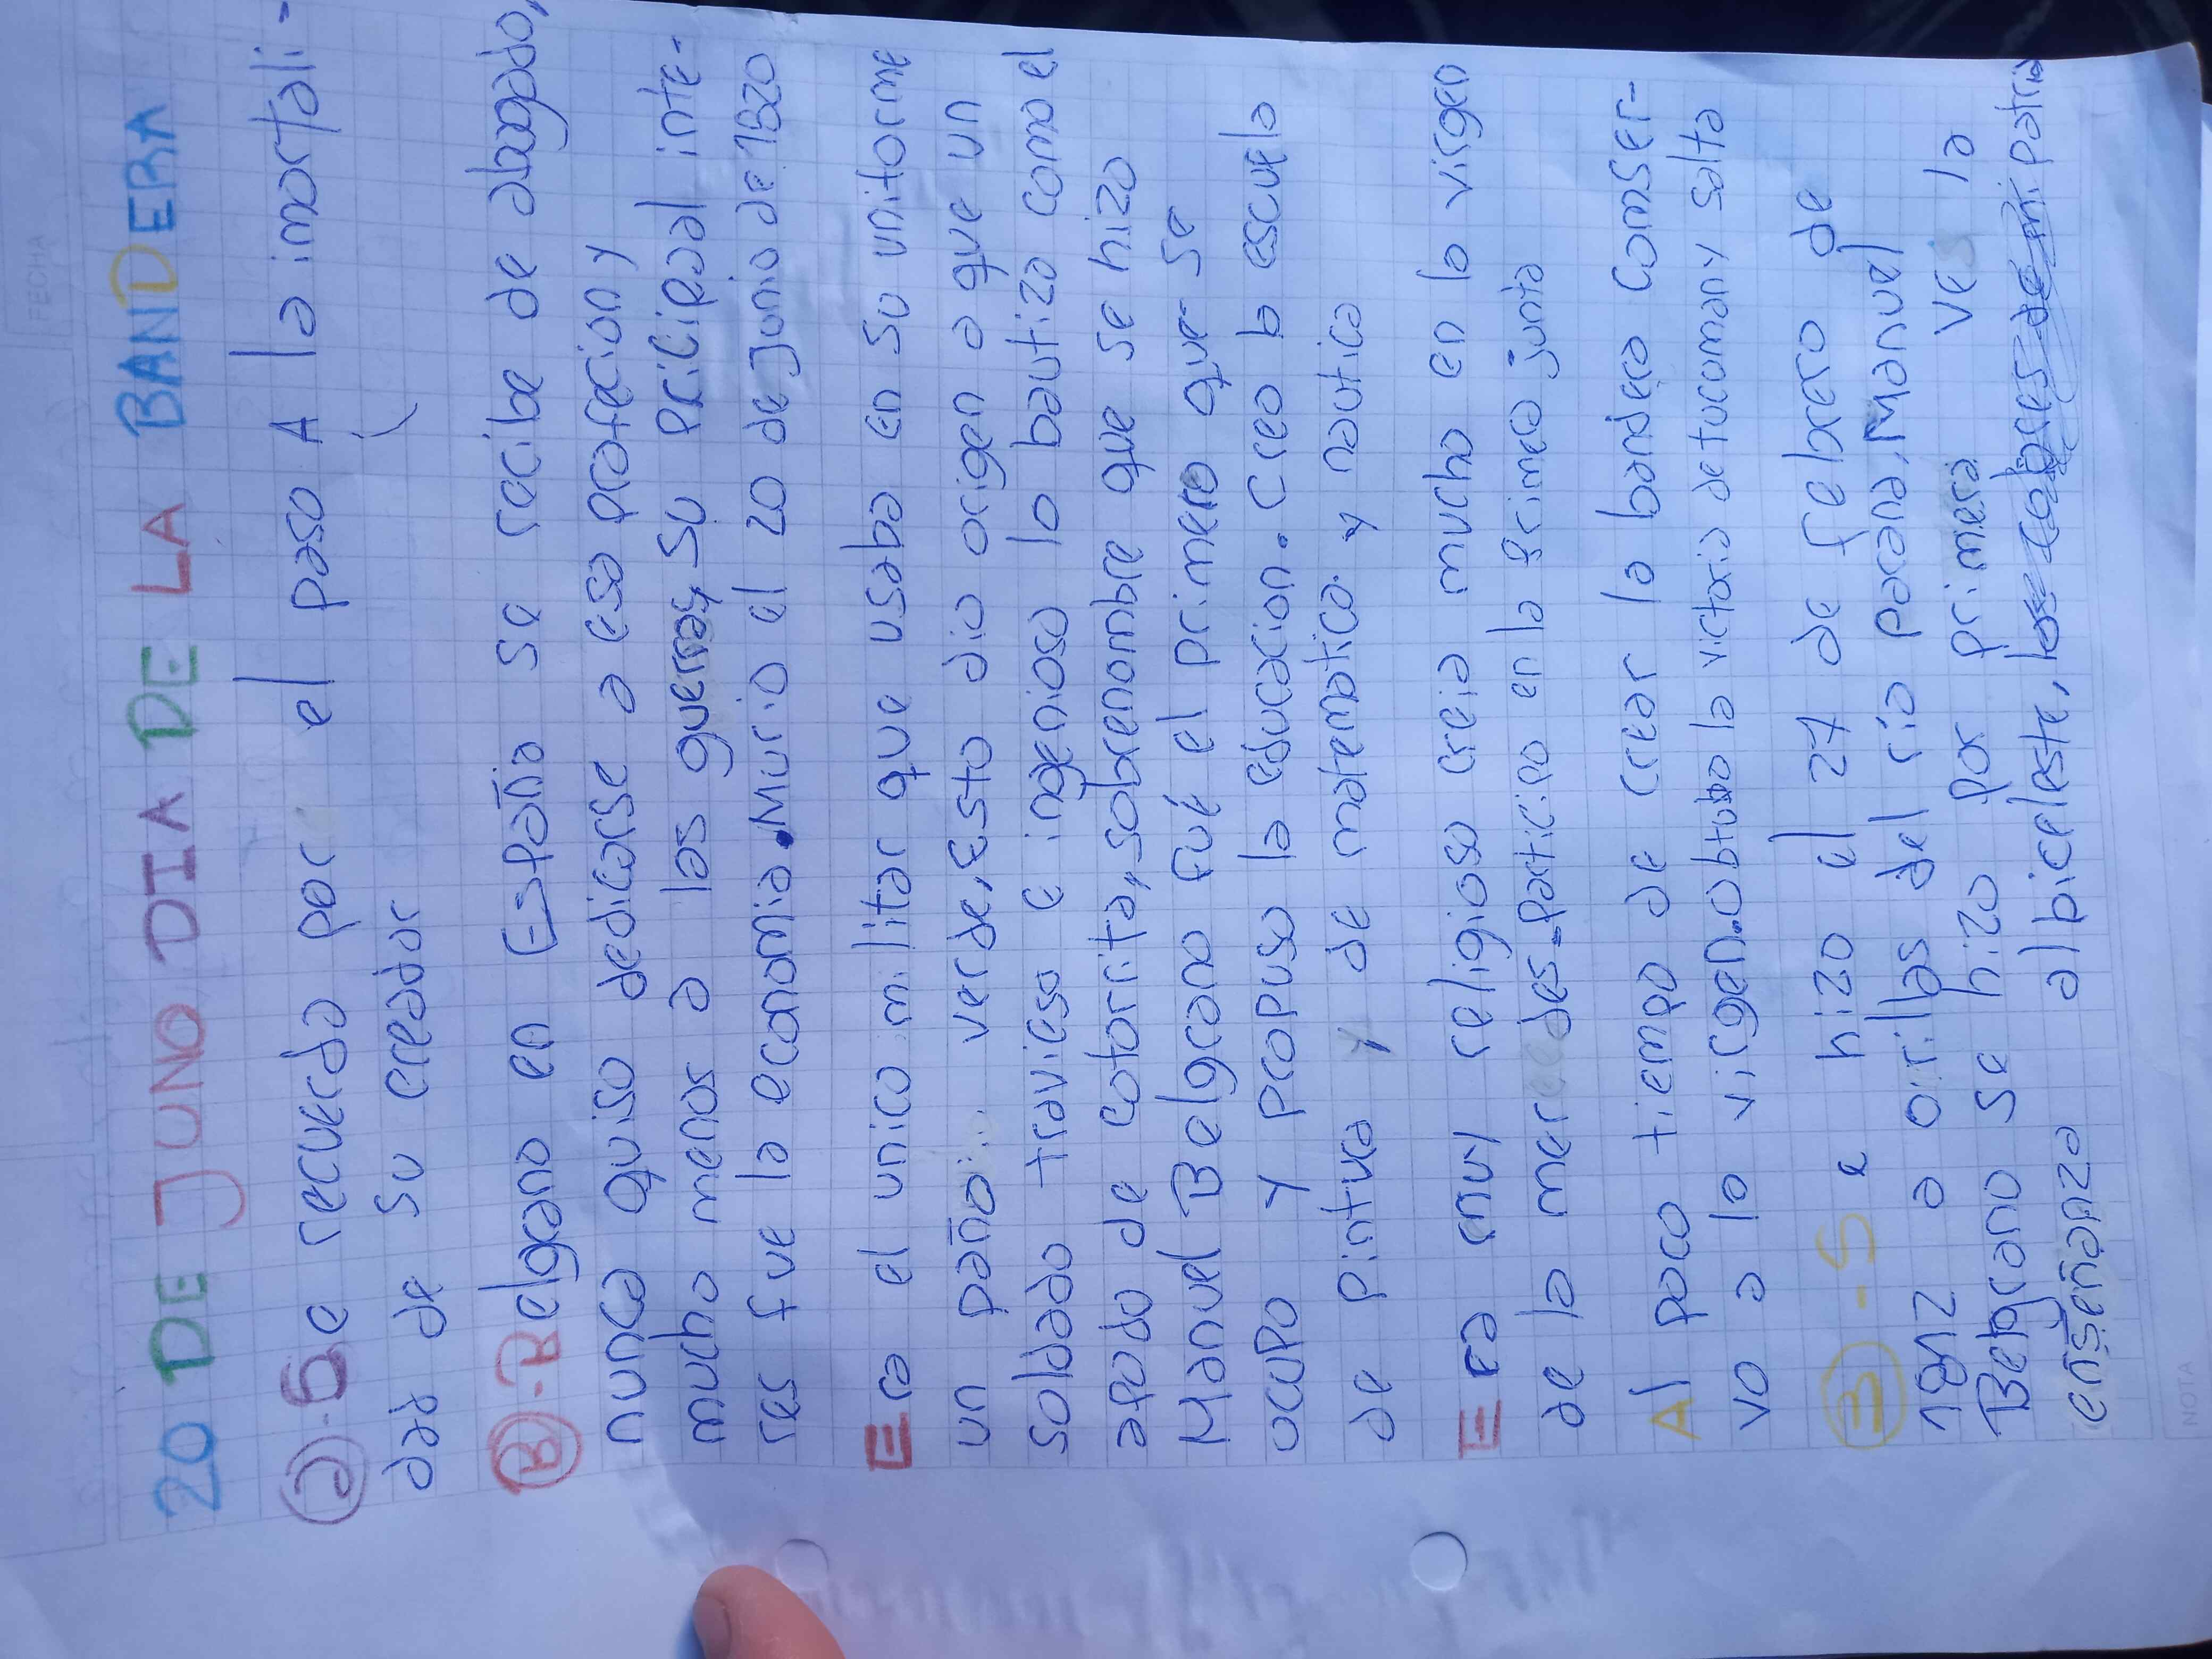 20 DE JUNO DIA DE LA BANDERA
a-Se recuerda por el paso A la inmortali-
dad de su creador
B-Belgrano en España se recibe de abogado,
nunca quiso dedicarse a esa profecion y
mucho menos a las guerras, su pricipal inte-
res fue la economia. Murio el 20 de junio de 1820
Era el unico militar que usaba en su uniforme
un paño verde, Esto dio origen a que un
soldado travieso e ingenioso lo bautizo como el
apodo de cotorrita, sobrenombre que se hizo
Manuel Belgrano fué el primero que se
ocupo y propuso la educacion. Creo la escuela
de pintura y de matematica y nautica
Era muy religioso creia mucho en la virgen
de la mercedes-participo en la primera junta
Al poco tiempo de crear la bandera conser-
vo a la virgen. Obtubo la victoria de tucuman y salta
3-Se hizo el 27 de febrero de
1812 a orillas del rio parana, Manuel
Belgrano se hizo por primera ves la
enseñanza albiceleste, los colores de mi patria